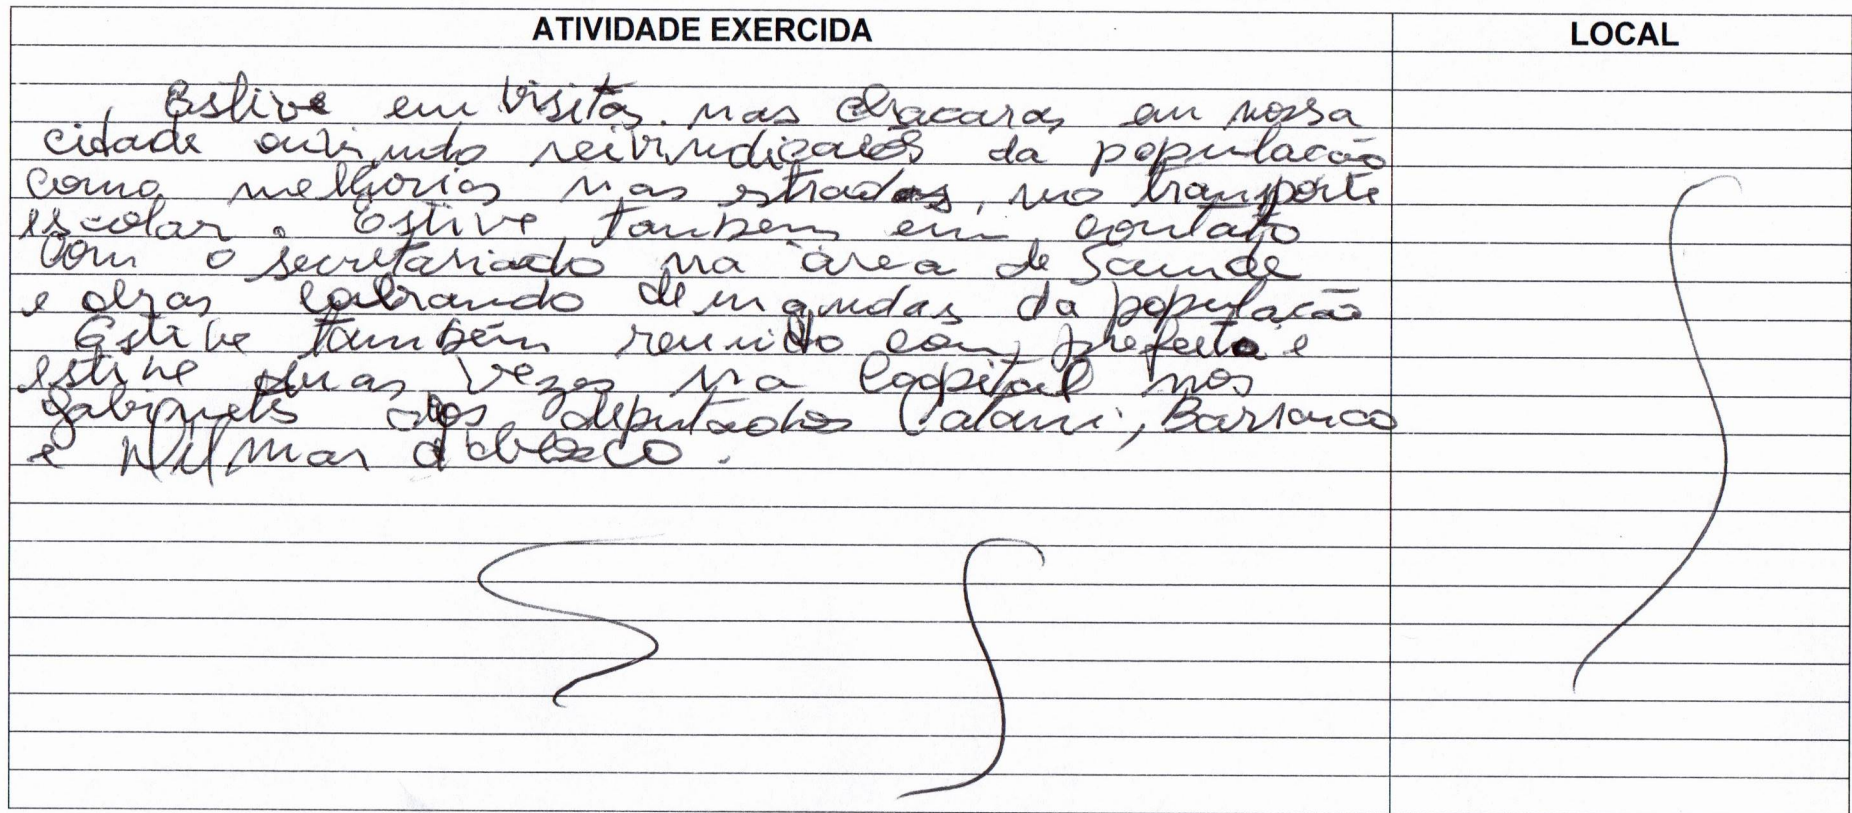 ATIVIDADE EXERCIDA
LOCAL
Estive em visitas nas chacaras em nossa
cidade ouvindo reivindicacões da população
como melhorias nas estradas, no transporte
escolar. Estive também em contato
com o secretariado na área de Saude
e obras cobrando demandas da população
Estive também reunido com prefeito e
estive duas vezes na Capital nos
gabinets dos deputados Catani, Barranco
e Dilmar